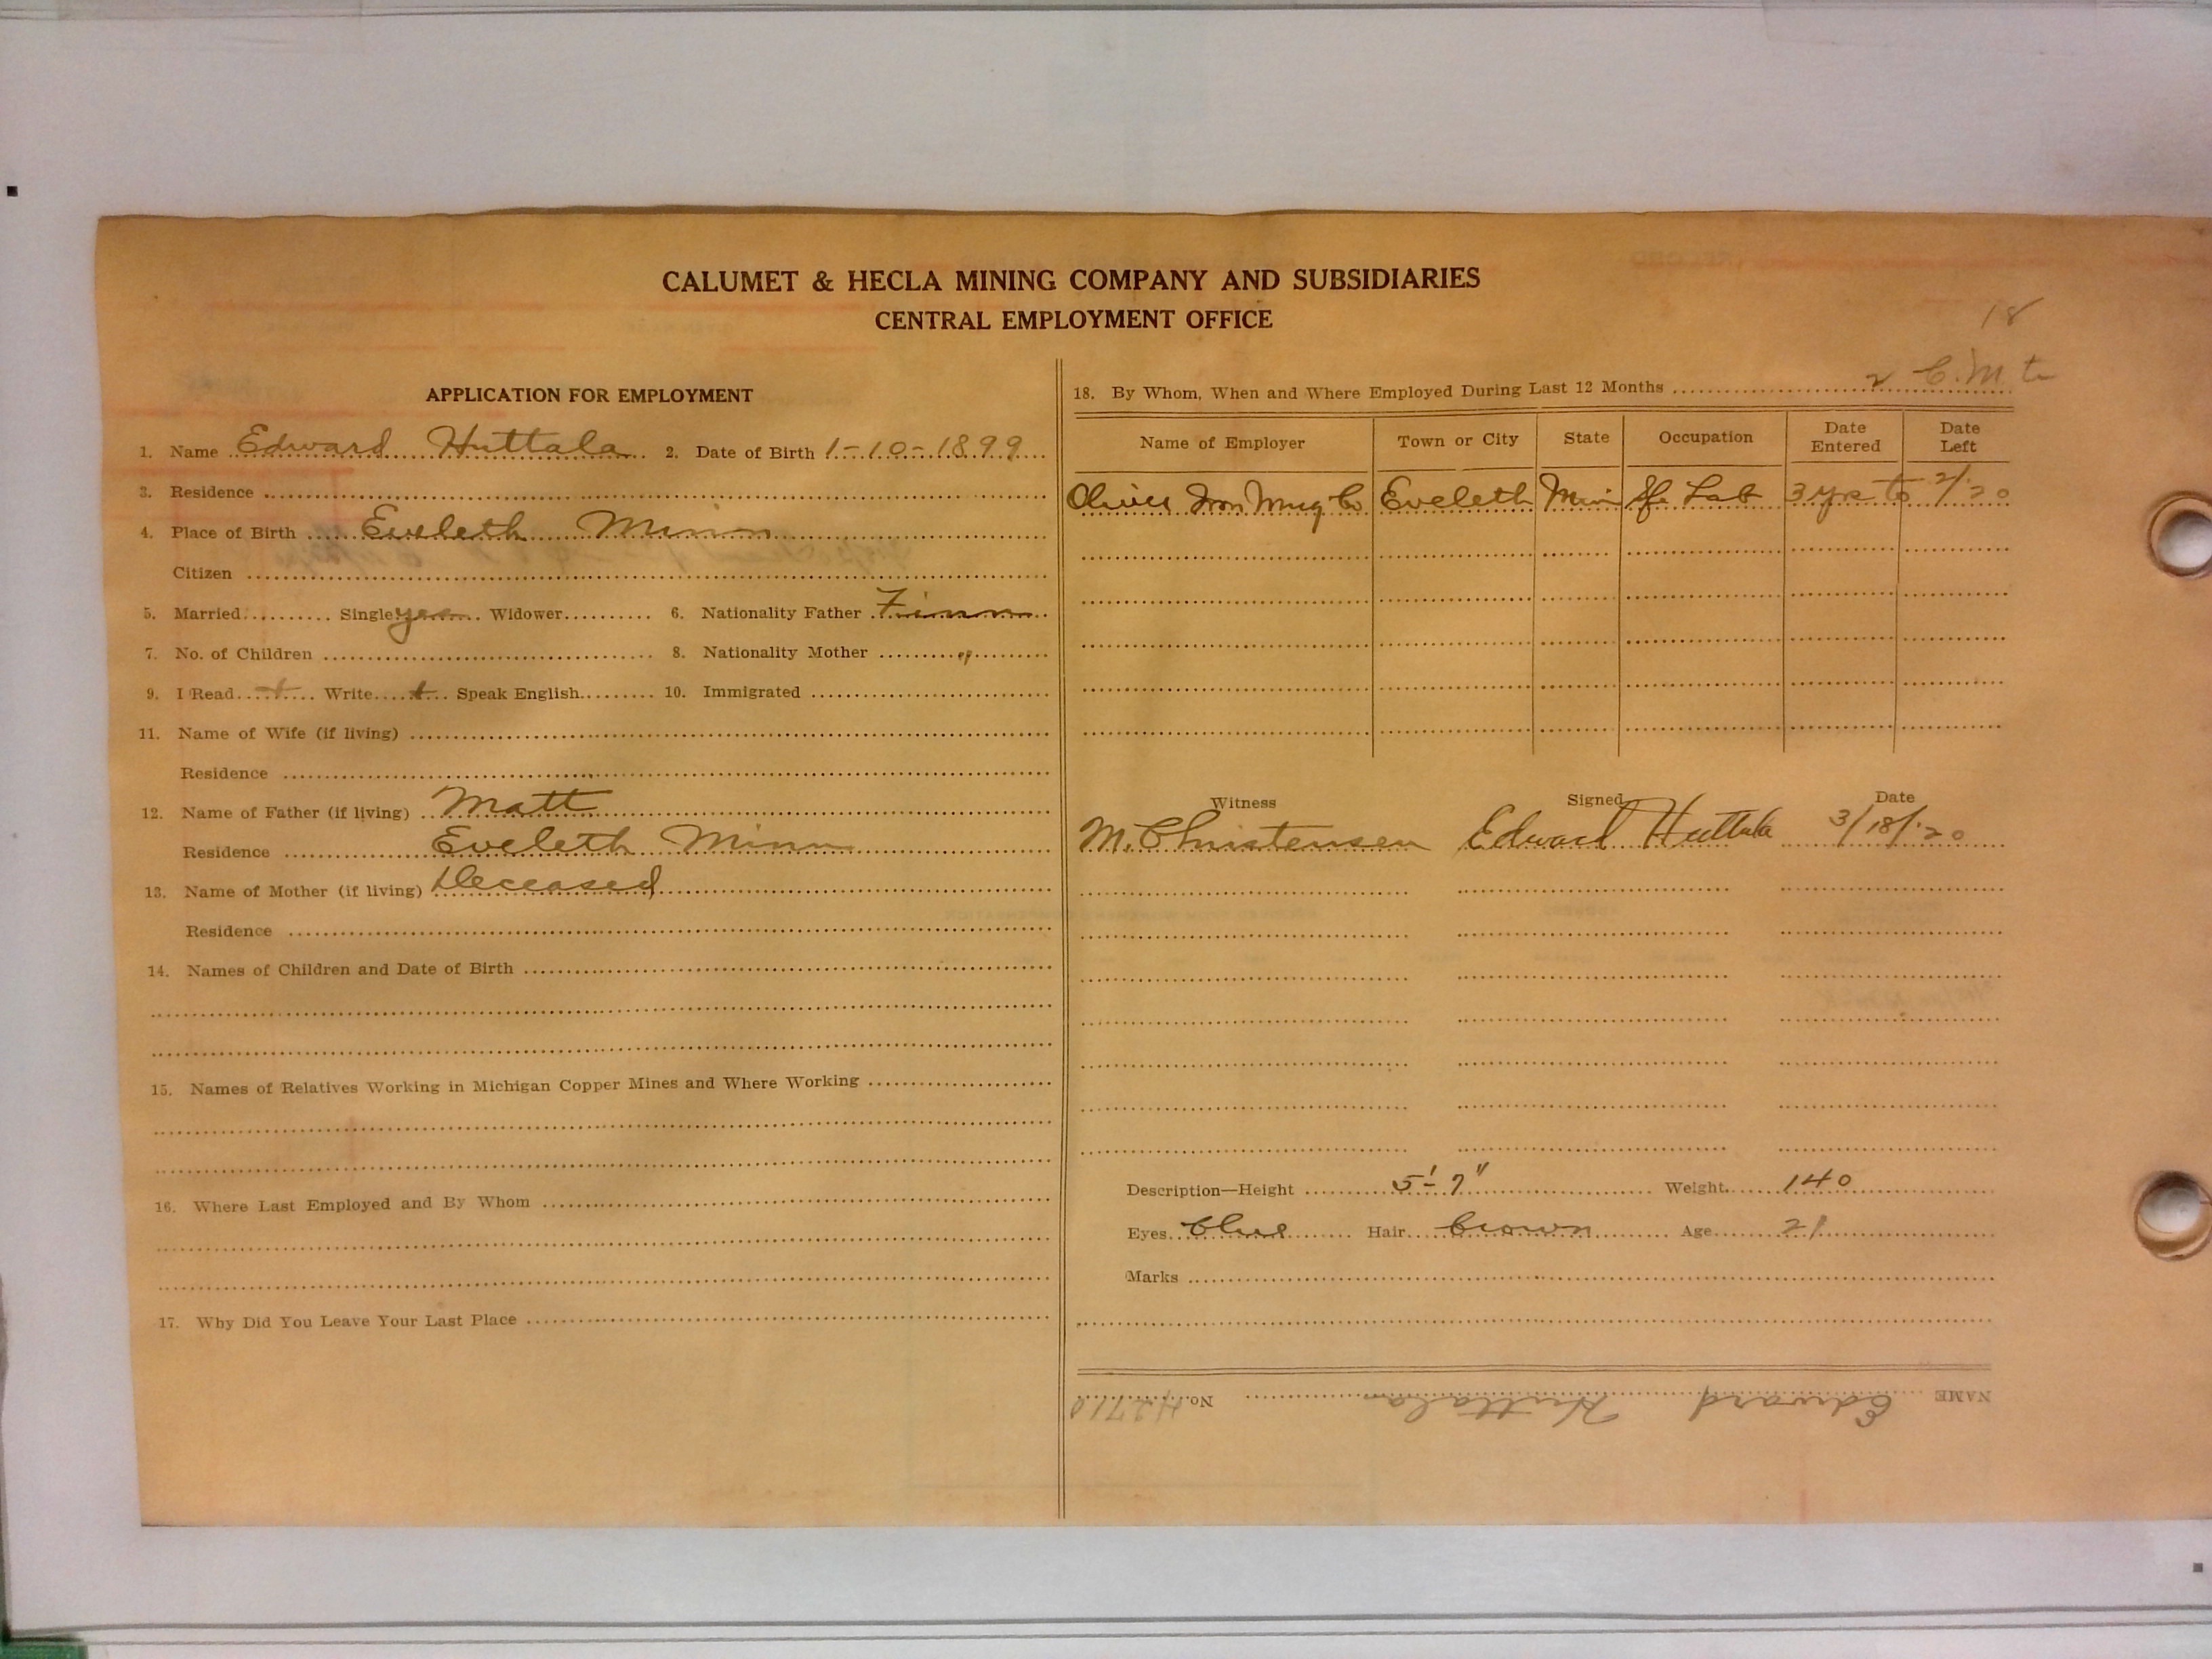 CALUMET & HECLA MINING COMPANY AND SUBSIDIARIES
CENTRAL EMPLOYMENT OFFICE
18
APPLICATION FOR EMPLOYMENT
1. Name Edward Huttala 2. Date of Birth 1-10-1899
3. Residence
4. Place of Birth Eveleth Minn
Citizen
5. Married Single yes Widower 6. Nationality Father Finn
7. No. of Children 8. Nationality Mother "
9. I Read Write Speak English 10. Immigrated
11. Name of Wife (if living)
Residence
12. Name of Father (if living) Matt
Residence Eveleth Minn
13. Name of Mother (if living) Deceased
Residence
14. Names of Children and Date of Birth
15. Names of Relatives Working in Michigan Copper Mines and Where Working
16. Where Last Employed and By Whom
17. Why Did You Leave Your Last Place
18. By Whom, When and Where Employed During Last 12 Months
Name of Employer Town or City State Occupation Date Entered Date Left
Oliver Iron Mng Co Eveleth Minn Sfc Lab 3 yrs to 2/20
Witness Signed Date
M. Christensen Edward Huttala 3/18/20
Description—Height 5'-7" Weight 140
Eyes blue Hair brown Age 21
Marks
NAME Edward Huttala No.